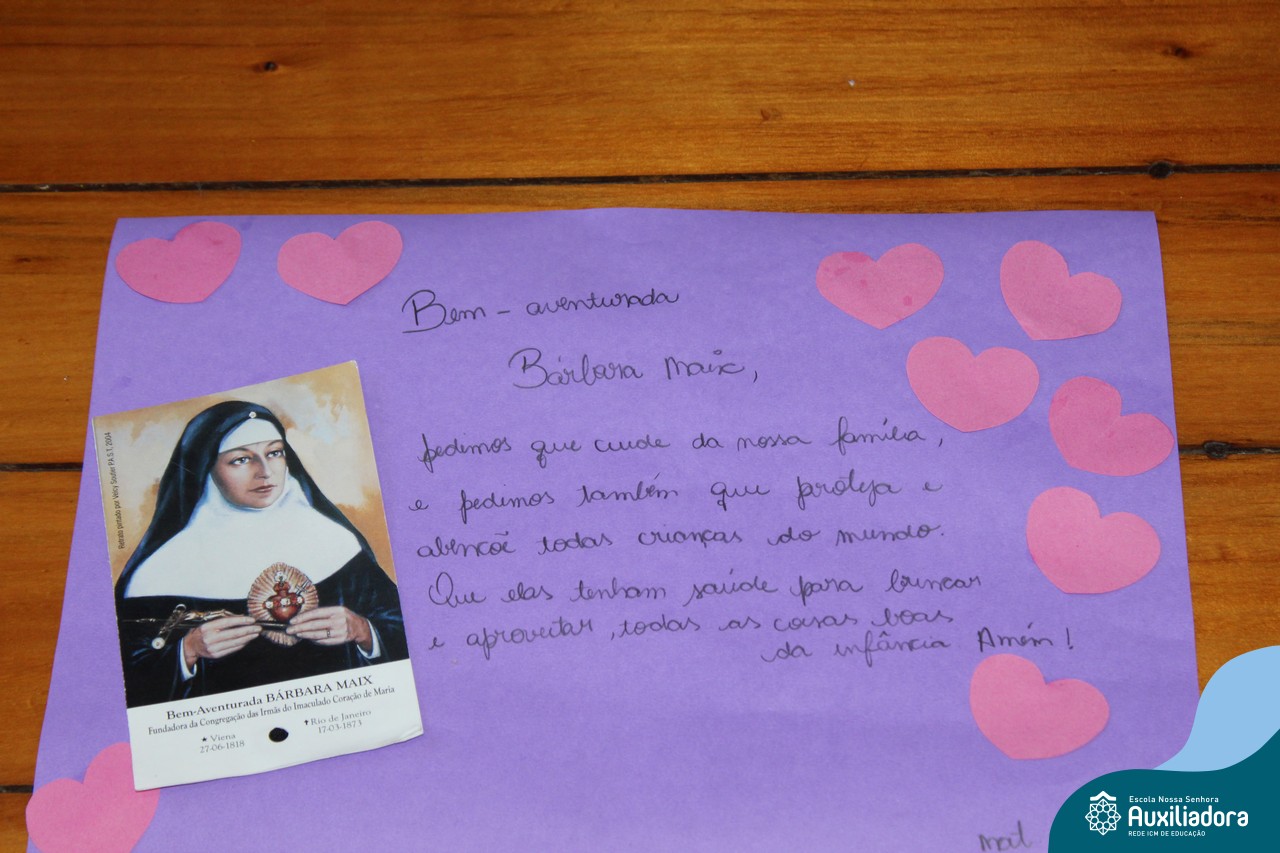 Bem - aventurada
Bárbara Maix,
pedimos que cuide da nossa família,
e pedimos também que proteja e
abençoe todas crianças do mundo.
Que elas tenham saúde para brincar
e aproveitar, todas as coisas boas
da infância Amém!
Retrato pintado por Veny Souber P.A S.T. 2004
Bem-Aventurada BÁRBARA MAIX
Fundadora da Congregação das Irmãs do Imaculado Coração de Maria
★ Viena
27-06-1818
✝ Rio de Janeiro
17-03-1873
Escola Nossa Senhora
Auxiliadora
REDE ICM DE EDUCAÇÃO